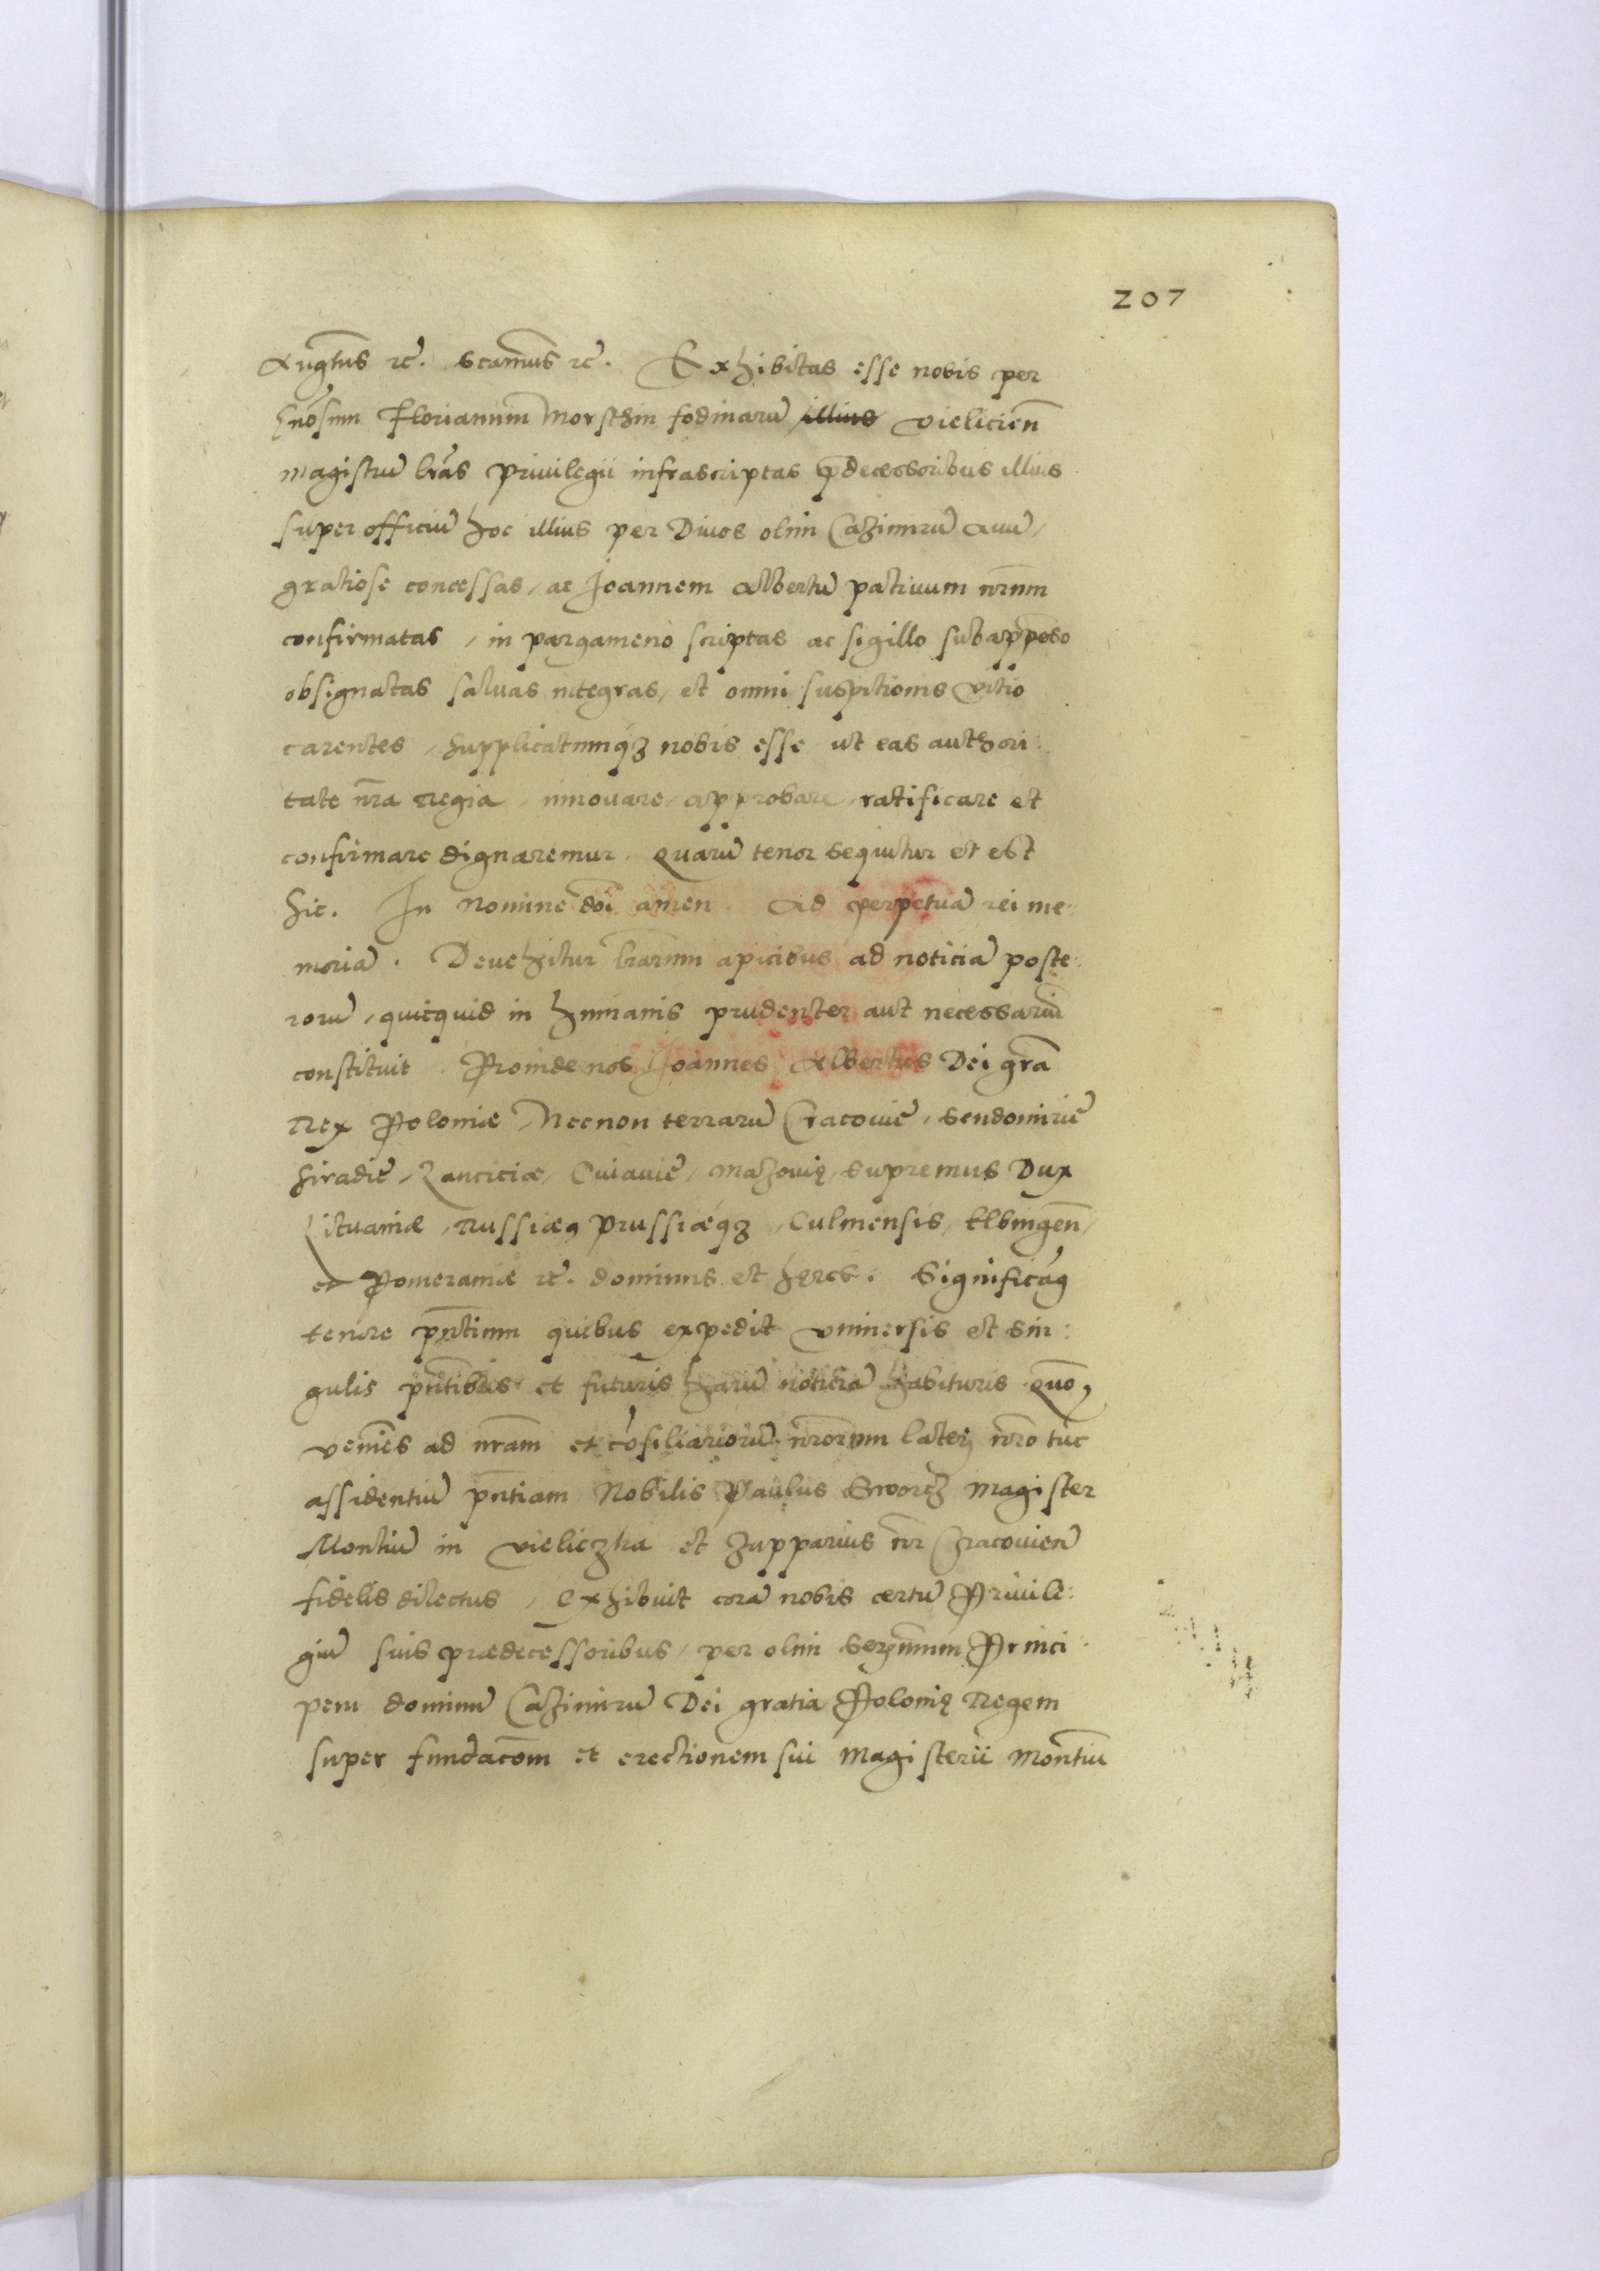 207
Augtus rc̄. scamus rc̄. Exhibitas esse nobis per
Gnosum Florianum Morsthin fodinarū illius vielicien̄
magistrū lr̄as privilegii infrascriptas p̄decessoribus illius
super officiū hoc illius per Divos olim Cazimirū avū,
gratiose concessas, ac Joannem Albertū patruum nr̄um
confirmatas, in pargameno scriptas ac sigillo subapp̄eso
obsignatas salvas integras, et omni suspitionis vitio
carentes, supplicatumq3 nobis esse ut eas authori:
tate nr̄a Regia, innovare, approbare, ratificare et
confirmare dignaremur. Quarū tenor sequitur et est
hic. In Nomine dōi amen. Ad perpetuā rei me:
moriā. Devehitur lr̄arum apicibus ad noticiā poste:
rorū, quicquid in humanis prudenter aut necessariū
constituit. Proinde nos Joannes Albertus Dei gr̄a
Rex Poloniæ Necnon terrarū Cracovie, Sendomirie
Siradie, Lanciciæ, Cuiavie, Mazovię, Supremus Dux
Lituaniæ, Russiæq, Prussiæq3, Culmensis, Elbingen̄,
et Pomeraniæ rc̄. dominus et heres. Significāq
tenore pn̄tium quibus expedit universis et sin:
gulis pn̄tibus et futuris harū noticiā habituris quo,
veniēs ad nr̄am et cōsiliariorū nr̄orum lateri nr̄o tūc
assidentiū pn̄tiam Nobilis Paulus Sworcz Magister
Montiū in vieliczka et zupparius nr̄ Cracovien̄
fidelis dilectus, Exhibuit corā nobis certū Privile:
giū suis prædecessoribus, per olim Serm̄um Princi:
pem dominū Cazimirū Dei gratia Polonię Regem
super fundacōm et erectionem sui Magisterii Montiū